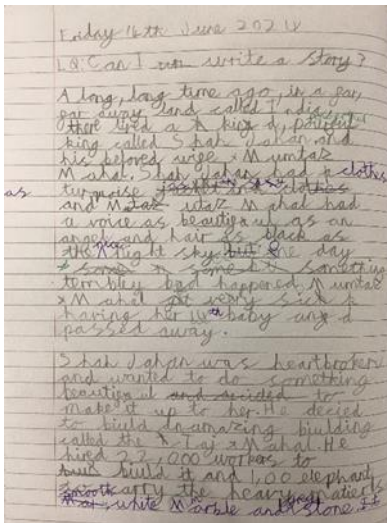 Friday 16th June 202
L.Q: Can I write a story?
A long, long time ago, in a far,
far away land called India
there lived a king powerful
king called Shah Jahan and
his beloved wife Mumtaz
Mahal. Shah Jahan had clothes
as turquoise
and Mahal had
a voice as beautiful as an
angel and hair as black as
the night sky. One day
something
terribley bad happened. Mumtaz
Mahal got very sick
having her 14th baby and
passed away.
Shah Jahan was heartbroken
and wanted to do something
beautiful and decided to
make it up to her. He decied
to biuld an amazing biulding
called the Taj Mahal. He
hired 22,000 workers to
biuld it and 1,00 elephant
to carry the heavy matierls
smooth white Marble and stone. It